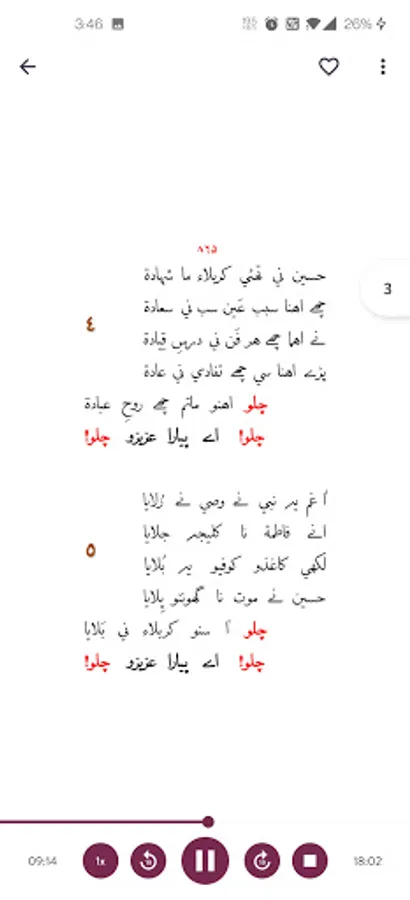 3:46
26%
٨٦٥
3
حسين ني تھئي كربلاء ما شهادة
چھے اهنا سبب عَين سب ني سعادة
٤
نے اهما چھے هر فَن ني درسِ قيادة
پڑے اهنا سي چھے تفادي ني عادة
چلو اهنو ماتم چھے روحِ عبادة
چلو! اے پيارا عزيزو چلو!
اْ غم يہ نبي نے وصي نے رُلايا
انے فاطمة نا كليجہ جلايا
٥
لكهي كاغذو كوفيو يہ بُلايا
حسين نے موت نا گھونٹو پِلايا
چلو اْ سنو كربلاء ني بَلايا
چلو! اے پيارا عزيزو چلو!
09:14
1x
18:02